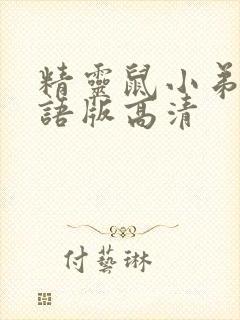 精靈鼠小弟
語版高清
付藝琳